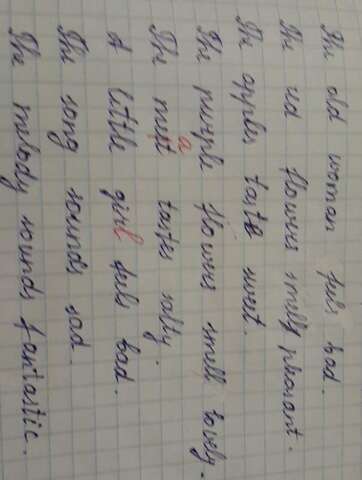 The old woman feels bad.
The red flowers smell pleasant.
The apples taste sweet.
The purple flowers smell lovely.
The meat tastes salty.
A little girl feels bad.
The song sounds sad.
The melody sounds fantastic.